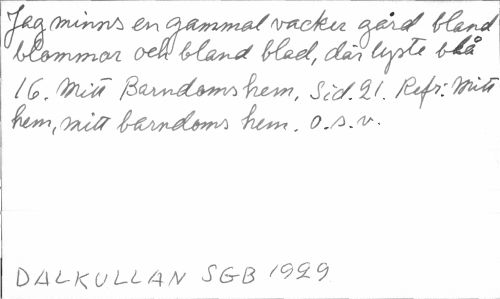 Jag minns en gammal vacker gård bland
blommor och bland blad, där lyste blå
16. Mitt Barndomshem. Sid. 21. Refr: Mitt
hem, mitt barndoms hem. o.s.v.
DALKULLAN SGB 1929